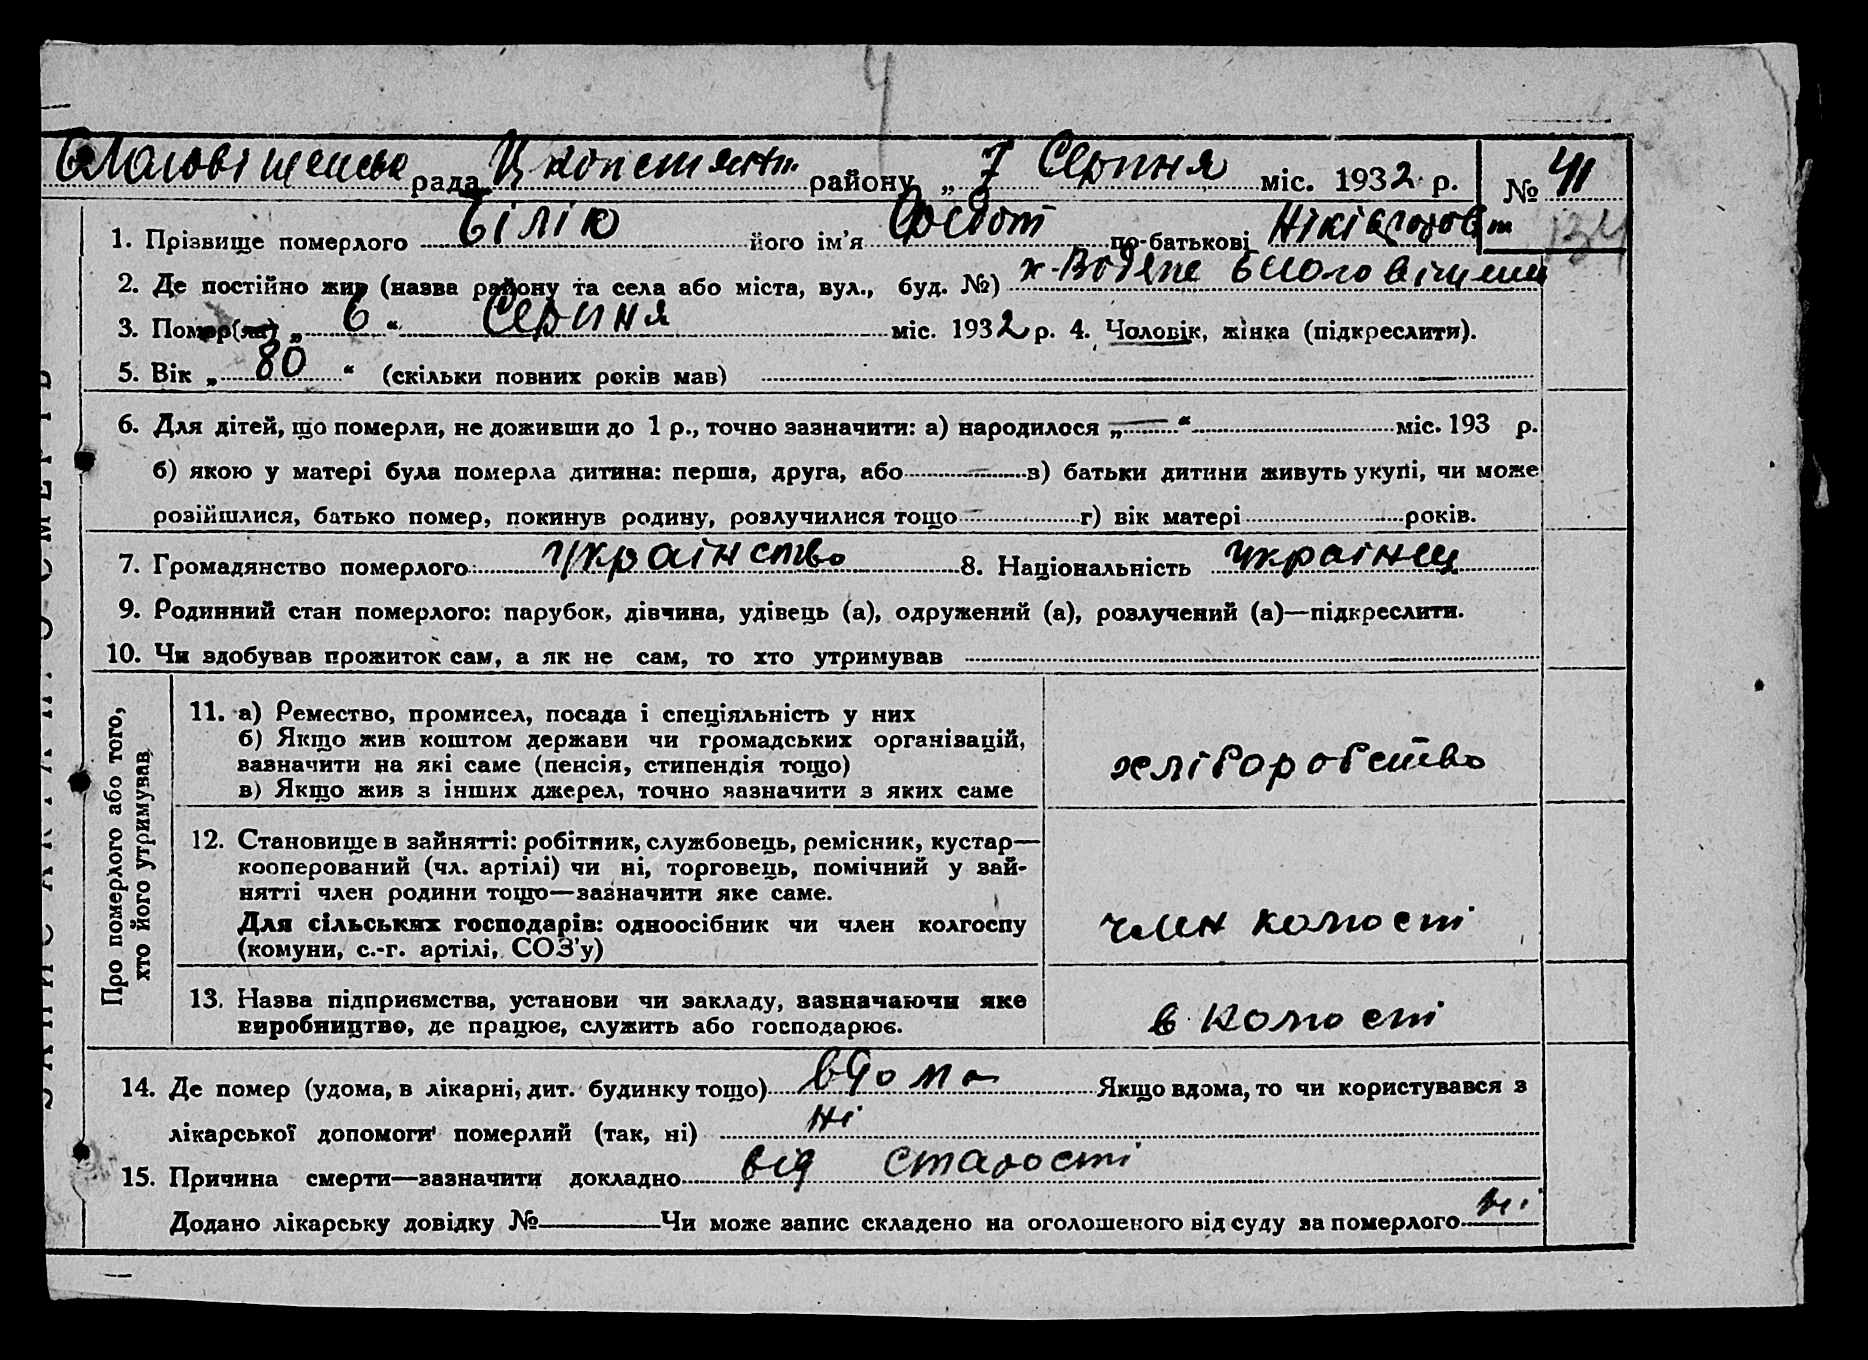 рада району „ 7 Серпня міс. 1932 р. № 41
1. Прізвище померлого Білік його ім’я Федот по-батькові
2. Де постійно жив (назва району та села або міста, вул., буд. №)
3. Помер(ла) „ 6 “ Серпня міс. 1932 р. 4. Чоловік, жінка (підкреслити).
5. Вік „ 80 “ (скільки повних років мав)
6. Для дітей, що померли, не доживши до 1 р., точно зазначити: а) народилося „ — “ міс. 193 р.
б) якою у матері була померла дитина: перша, друга, або — в) батьки дитини живуть укупі, чи може
розійшлися, батько помер, покинув родину, розлучилися тощо — г) вік матері років.
7. Громадянство померлого Українство 8. Національність Українец
9. Родинний стан померлого: парубок, дівчина, удівець (а), одружений (а), розлучений (а)—підкреслити.
10. Чи здобував прожиток сам, а як не сам, то хто утримував
Про померлого або того,
хто його утримував
11. а) Ремество, промисел, посада і спеціяльність у них
б) Якщо жив коштом держави чи громадських організацій,
зазначити на які саме (пенсія, стипендія тощо)
в) Якщо жив з інших джерел, точно зазначити з яких саме
хліборобство
12. Становище в зайнятті: робітник, службовець, ремісник, кустар—
кооперований (чл. артілі) чи ні, торговець, помічний у зай-
нятті член родини тощо—зазначити яке саме.
Для сільських господарів: одноосібник чи член колгоспу
(комуни, с.-г. артілі, СОЗ’у)
член
13. Назва підприємства, установи чи закладу, зазначаючи яке
виробництво, де працює, служить або господарює.
в
14. Де помер (удома, в лікарні, дит. будинку тощо) вдома Якщо вдома, то чи користувався з
лікарської допомоги померлий (так, ні) ні
15. Причина смерти—зазначити докладно від старості
Додано лікарську довідку № Чи може запис складено на оголошеного від суду за померлого ні